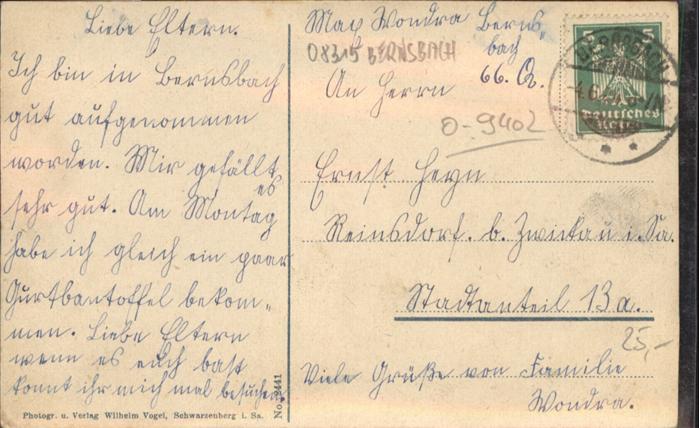 Liebe Eltern.
Ich bin in Bernsbach
gut aufgenommen
worden. Mir gefällt
es
sehr gut. Am Montag
habe ich gleich ein paar
Gurtbantoffel bekom-
men. Liebe Eltern
wenn es euch bast
könnt ihr mich mal besuchen.
Photogr. u. Verlag Wilhelm Vogel, Schwarzenberg i. Sa.
No. 2441
Max Wondra Berns-
bach
08315 BERNSBACH
66. Q.
An Herrn
0-9402
Ernst Heyn
Reinsdorf. b. Zwickau i. Sa.
Stadtanteil 13a.
25,-
Viele Grüße von Familie
Wondra.
5 5
Deutsches
Reich